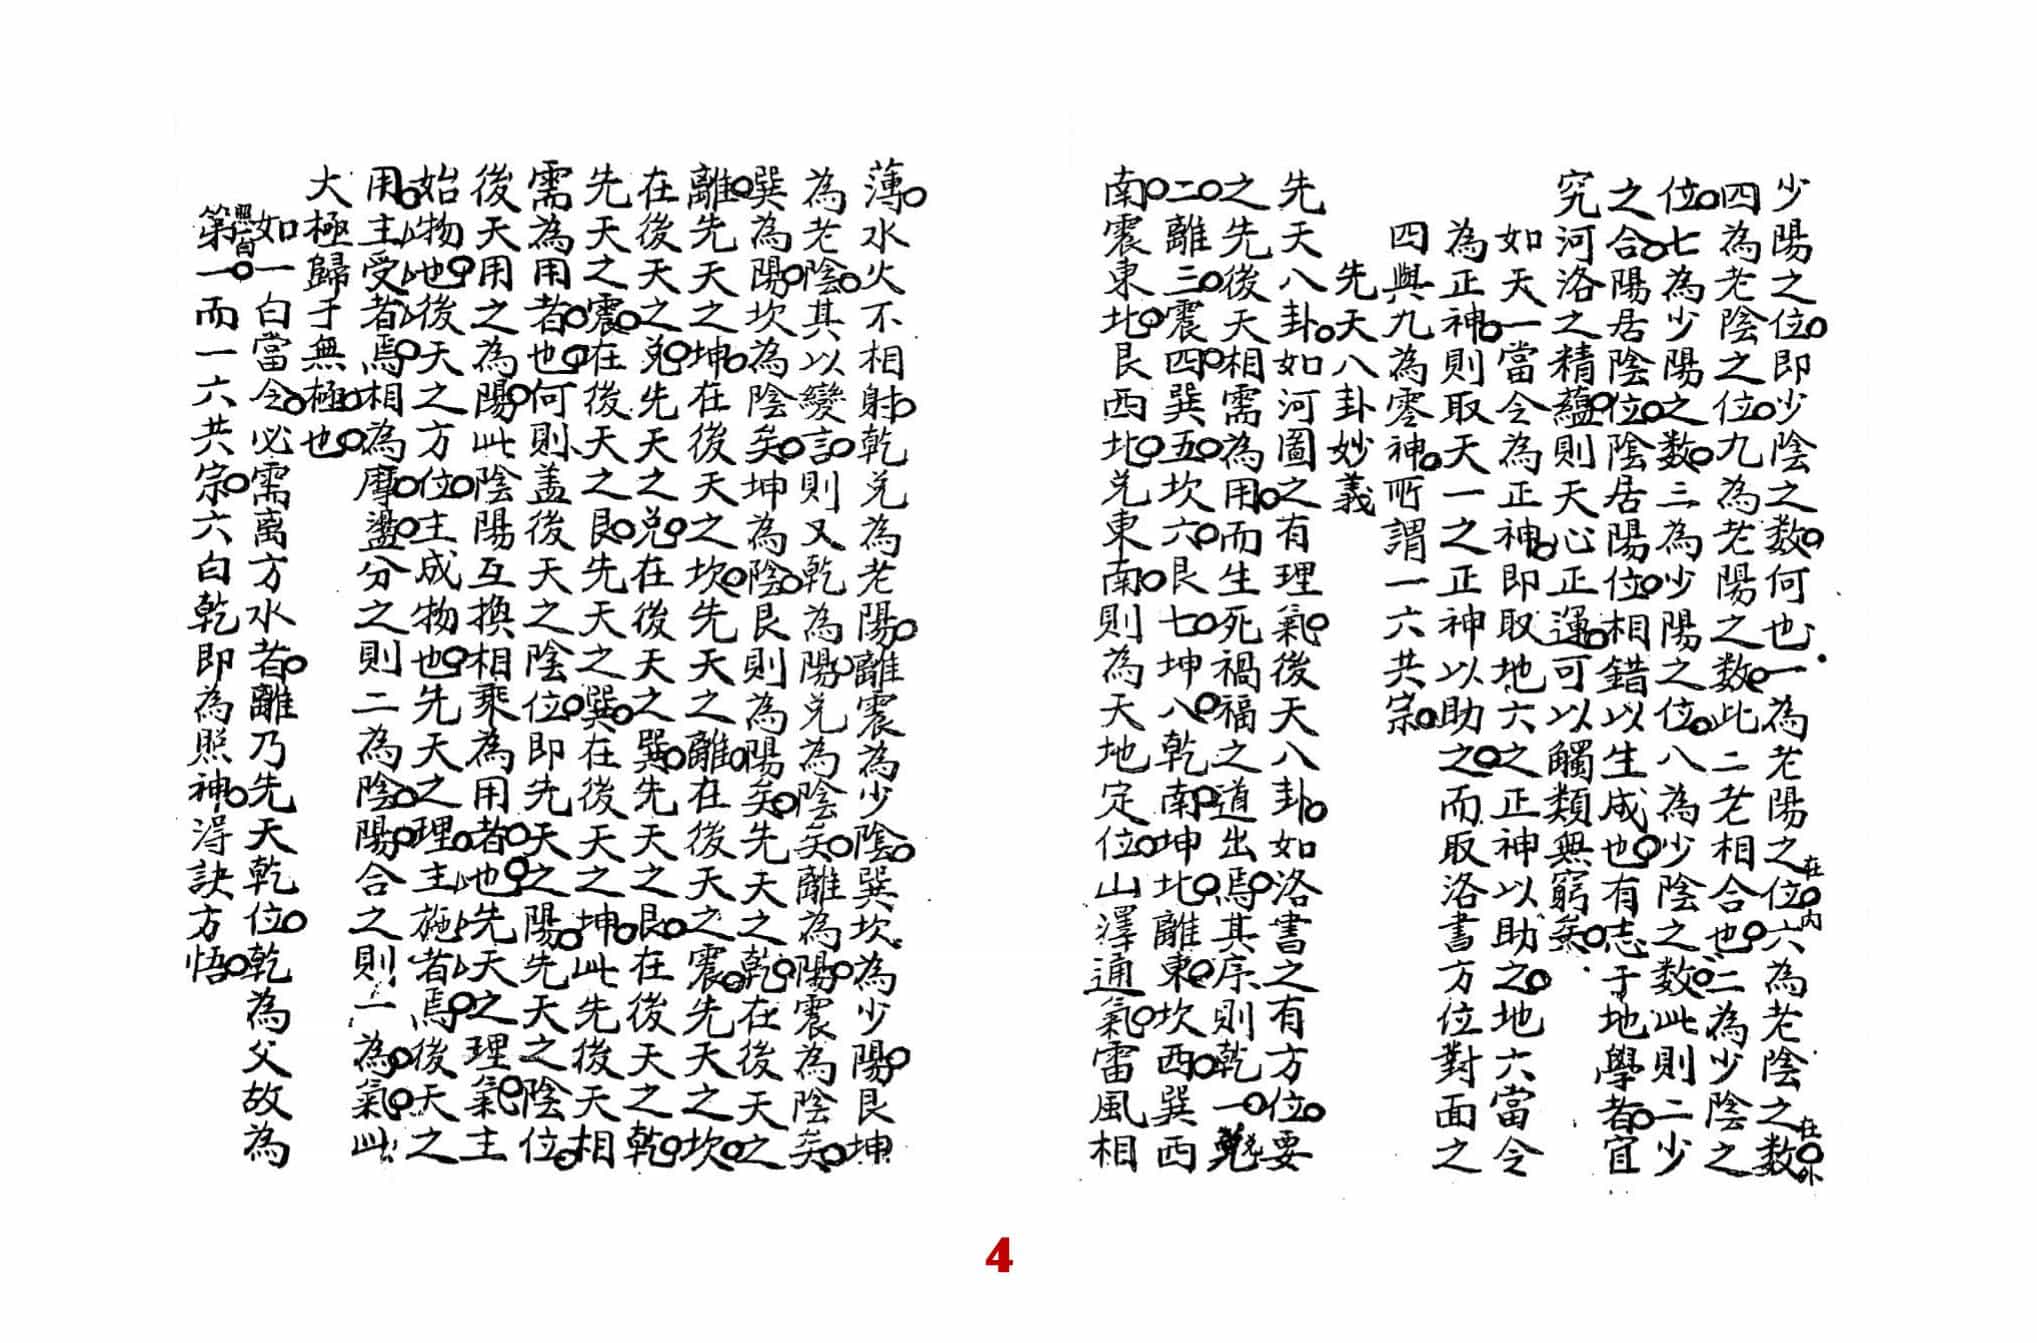 少陽之位。即少陰之数。何也。一為老陽之位。在内六為老陰之数。在外
四為老陰之位。九為老陽之数。此二老相合也。二為少陰之
位。七為少陽之数。三為少陽之位。八為少陰之数。此則二少
之合。陽居陰位。陰居陽位。相錯以生成也。有志于地學者。宜
究河洛之精蘊。則天心正運。可以觸類無窮矣。
如天一當令為正神。即取地六之正神以助之。地六當令
為正神。則取天一之正神以助之。而取洛書方位對面之
四與九為零神。所謂一六共宗。
先天八卦妙義
先天八卦。如河圖之有理氣。後天八卦。如洛書之有方位。要
之先後天相需為用。而生死禍福之道出焉。其序則乾一。兌
二。離三。震四。巽五。坎六。艮七。坤八。乾南。坤北。離東。坎西。巽西
南。震東北。艮西北。兌東南。則為天地定位。山澤通氣。雷風相
薄。水火不相射。乾兌為老陽。離震為少陰。巽坎為少陽。艮坤
為老陰。其以變言。則又乾為陽。兌為陰矣。離為陽。震為陰矣。
巽為陽。坎為陰矣。坤為陰。艮則為陽矣。先天之乾。在後天之
離。先天之坤。在後天之坎。先天之離。在後天之震。先天之坎。
在後天之兌。先天之兌。在後天之巽。先天之艮。在後天之乾。
先天之震。在後天之艮。先天之巽。在後天之坤。此先後天相
需為用者也。何則。盖後天之陰位。即先天之陽。先天之陰位。
後天用之為陽。此陰陽互換相乘為用者也。先天之理氣。主
始物也。後天之方位。主成物也。先天之理。主施者焉。後天之
用。主受者焉。相為摩盪。分之則二為陰陽。合之則一為氣。此
大極歸于無極也。
如一白當令。必需离方水者。離乃先天乾位。乾為父。故為
照首。
第一而一六共宗。六白乾即為照神。淂訣方悟。
4